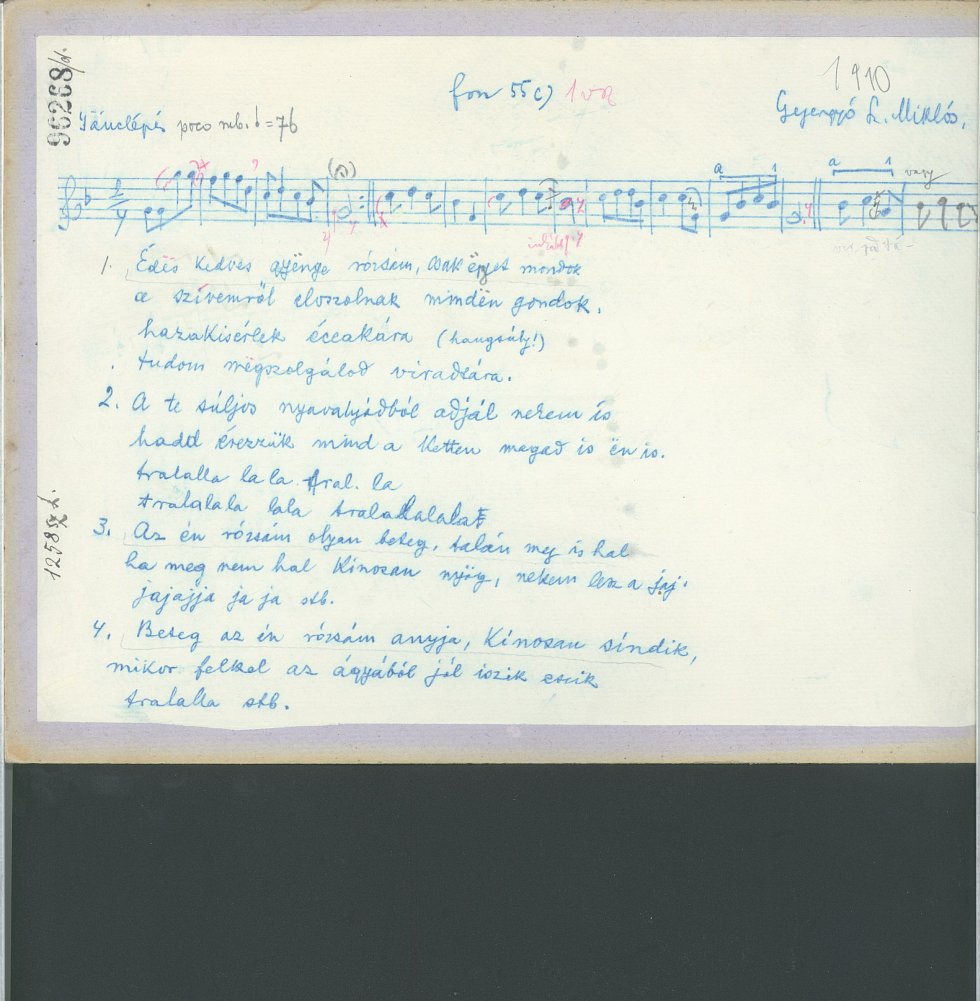 96268/d.
fon 55 c) 1 vsz
1910
Tánclépés poco rub. = 76
Gyergyó L. Miklós.
vagy
1. Édës kedves gyënge rózsám, csak ëgyet mondok
a szívemről eloszolnak mindën gondok,
hazakisérlek éccakára (hangsúly!)
tudom mëgszolgálod viradtára.
2. A te súljos nyavalyádból adjál nekem is
hadd érezzük mind a ketten magad is ën is.
tralalla la la tral. la
tralalala lala tralalalala
3. Az én rózsám olyan beteg, talán meg is hal
ha meg nem hal kínosan nyög, nekem lesz a jaj.
jajajja ja ja stb.
4. Beteg az én rózsám anyja, kínosan síndik,
mikor felkel az ágyából jól iszik eszik
tralalla stb.
1258